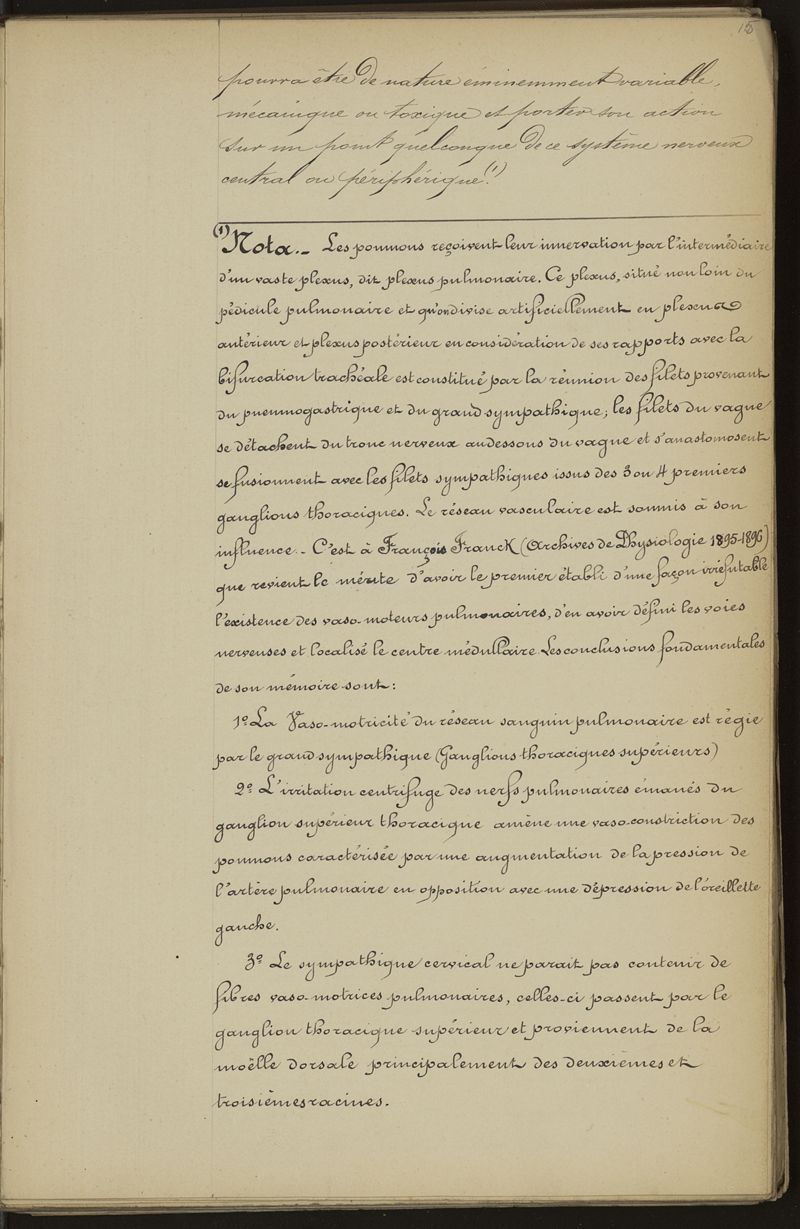 15
pourra être de nature éminemment variable,
mécanique ou toxique et porter son action
sur un point quelconque de ce système nerveux
central ou périphérique. (1)
(1) Nota._ Les poumons reçoivent leur innervation par l'intermédiaire
d'un vaste plexus, dit plexus pulmonaire. Ce plexus, situé non loin du
pédicule pulmonaire et qu'on divise artificiellement en plexus
antérieur et plexus postérieur en considération de ses rapports avec la
bifurcation trachéale est constitué par la réunion des filets provenant
du pneumogastrique et du grand sympathique; les filets du vague
se détachent du tronc nerveux au dessous du vague et s'anastomosent
se fusionnent avec les filets sympathiques issus des 3 ou 4 premiers
ganglions thoraciques. Le réseau vasculaire est soumis à son
influence._ C'est à François Franck (Archives de Physiologie 1895-1896)
que revient le mérite d'avoir le premier établi d'une façon irréfutable
l'existence des vaso-moteurs pulmonaires, d'en avoir défini les voies
nerveuses et localisé le centre médullaire. Les conclusions fondamentales
de son mémoire sont:
1º La Vaso-motricité du réseau sanguin pulmonaire est régie
par le grand sympathique (Ganglions thoraciques supérieurs)
2º L'irritation centrifuge des nerfs pulmonaires émanés du
ganglion supérieur thoracique amène une vaso-constriction des
poumons caractérisée par une augmentation de la pression de
l'artère pulmonaire en opposition avec une dépression de l'oreillette
gauche.
3º Le sympathique cervical ne parait pas contenir de
fibres vaso-motrices pulmonaires, celles-ci passent par le
ganglion thoracique supérieur et proviennent de la
moëlle dorsale principalement des deuxièmes et
troisièmes racines.